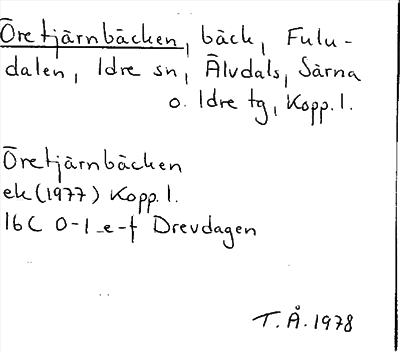 Öretjärnbäcken, bäck, Fulu-
dalen, Idre sn, Älvdals, Särna
o. Idre tg, Kopp. l.
Öretjärnbäcken
ek (1977) Kopp. l.
16C 0-1 e-f Drevdagen
T.Å. 1978